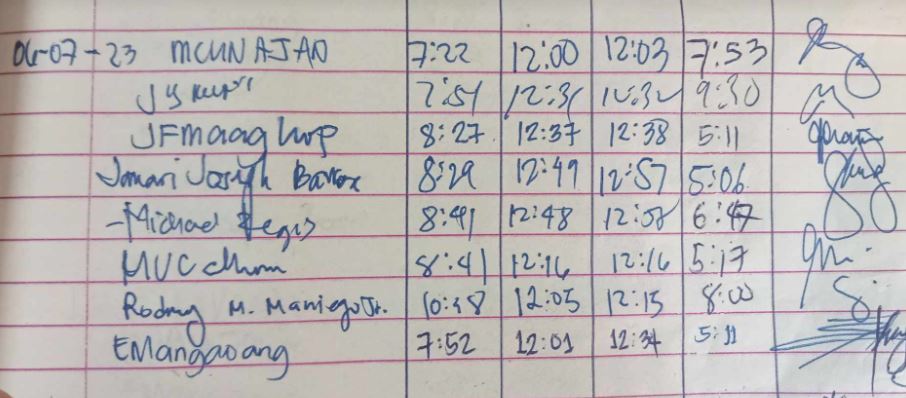 06-07-23 MCUNAJAN 7:22 12:00 12:03 7:53
7:51 12:31 12:32 9:30
JFmaaghop 8:27 12:37 12:38 5:11
Jomari Joseph 8:29 12:49 12:57 5:06
Michael Regis 8:41 12:48 12:58 6:47
8:41 12:16 12:16 5:17
Rodney M. Maniego Jr. 10:38 12:05 12:15 8:00
EMangaoang 7:52 12:01 12:34 5:11